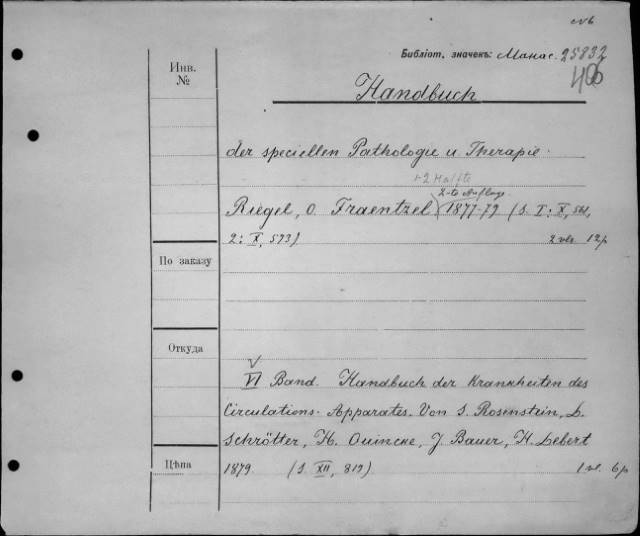 Библіот. значекъ: Манас. 25832
Инв.
№
Handbuch
der speciellen Pathologie u Therapie.
1-2 Hälfte
2-te Auflag.
Riegel, O. Fraentzel 1877-79 (S. I: X, 561,
2: X, 573) 2 vls. 12 p
По заказу
Откуда
VI Band. Handbuch der Krankheiten des
Circulations-Apparates. Von S. Rosenstein, L.
Schrötter, H. Quincke, J. Bauer, H. Lebert
Цѣна
1879 (S XII, 819) 1 vl. 6 p